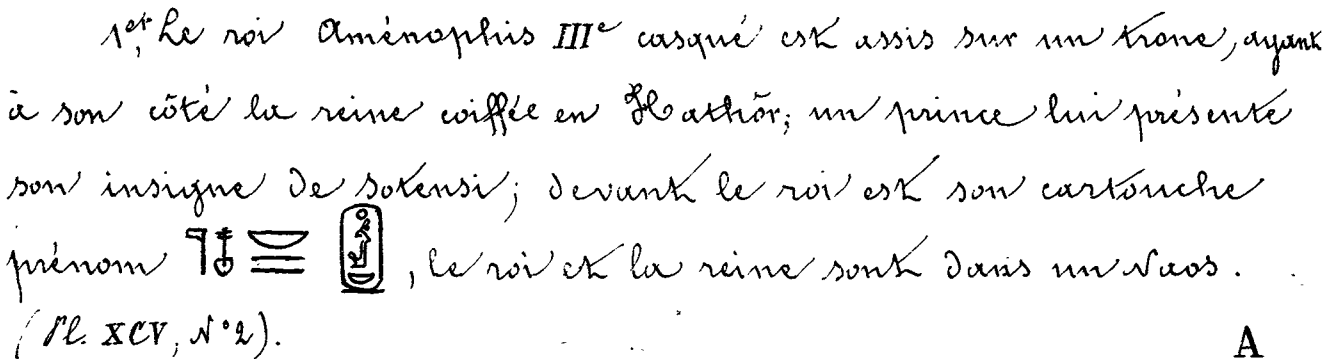 1er, Le roi Aménophis IIIe casqué est assis sur un trone, ayant
à son côté la reine coiffée en Hathôr; un prince lui présente
son insigne de sotensi; devant le roi est son cartouche
prénom 𓊹𓄤𓎟𓇿𓇿 𓍹𓇳𓁦𓎟𓍺, le roi et la reine sont dans un Naos.
(Pl. XCV, N° 2).
A